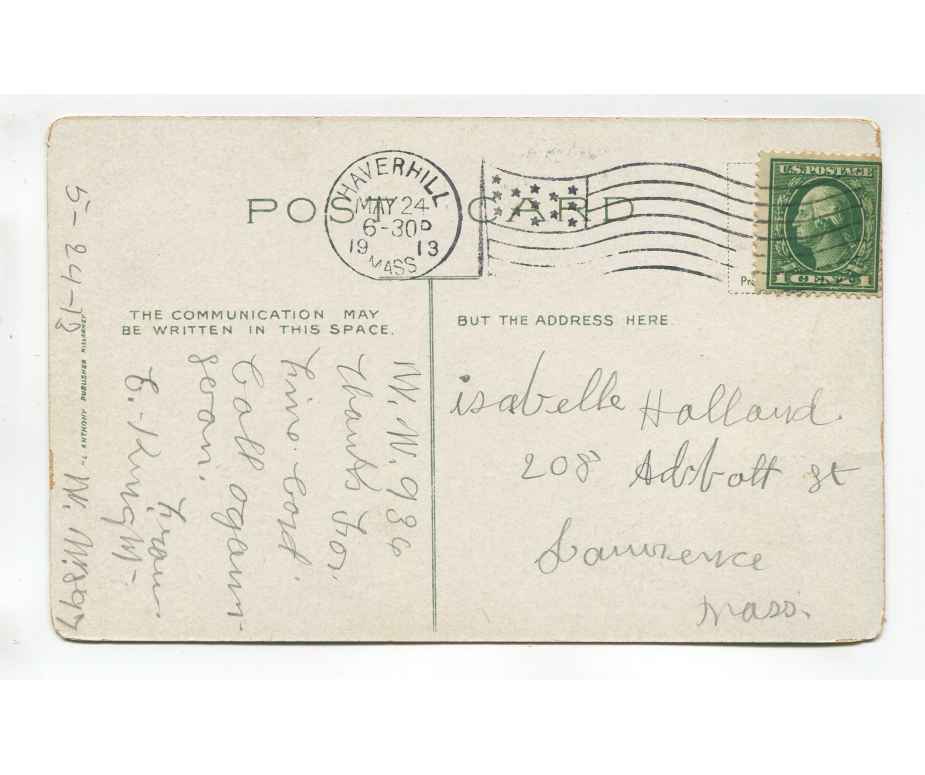 POST CARD
HAVERHILL
MAY 24
6-30P
19 13
MASS
U.S. POSTAGE
1 CENT 1
THE COMMUNICATION MAY
BE WRITTEN IN THIS SPACE.
BUT THE ADDRESS HERE.
M. W. 936
thanks for
fine card.
Call again
soon.
From
C. Knight-
5-24-13
W. M. 897
ANTHONY PUBLISHER
isabelle Holland
208 Abbott st
Lawrence
Mass.